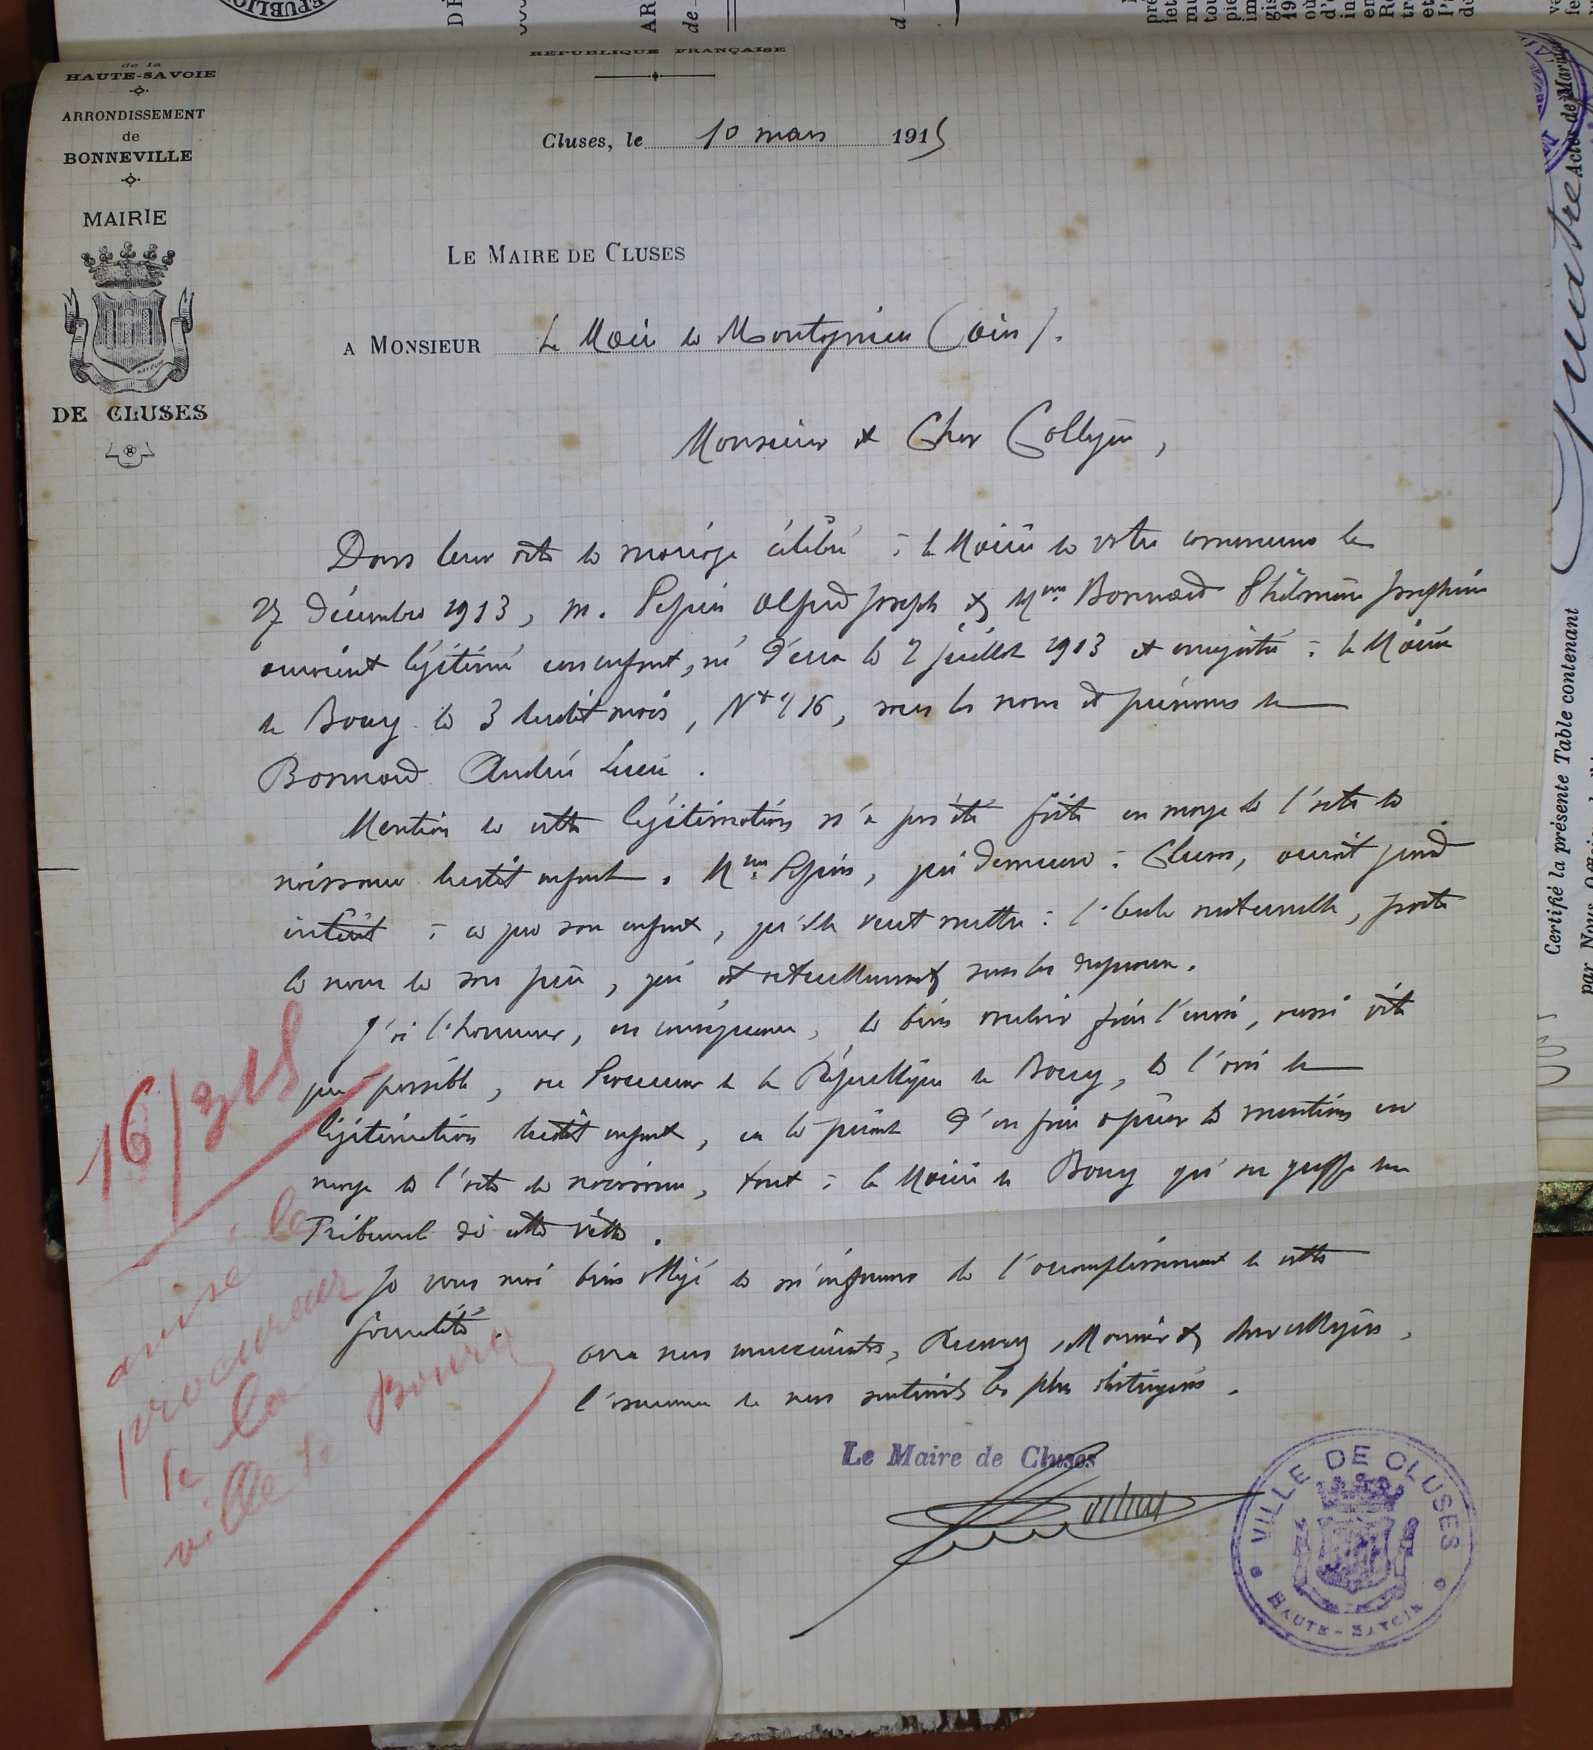 RÉPUBLIQUE FRANÇAISE
de la
HAUTE-SAVOIE
ARRONDISSEMENT
de
BONNEVILLE
MAIRIE
DE CLUSES
Cluses, le 10 mars 1915
LE MAIRE DE CLUSES
A MONSIEUR le Maire de Montagnieu (Ain).
Monsieur et Cher Collègue,
Dans leur acte de mariage célébré à la Mairie de votre commune le
27 décembre 1913, M. Pépin Alfred Joseph & Mme Bonnard Philomène Joséphine
auraient légitimé un enfant, né d'eux le 2 juillet 1913 et enregistré à la Mairie
de Bourg le 3 dudit mois, N° 216, sous les nom et prénoms de
Bonnard André
Mention de cette légitimation n'a pas été faite en marge de l'acte de
naissance dudit enfant. Mme Pépin, qui demeure à Cluses, aurait grand
intérêt à ce que son enfant, qu'elle veut mettre à l'école maternelle, porte
le nom de son père, qui est actuellement sous les drapeaux.
J'ai l'honneur, en conséquence, de bien vouloir faire l'envoi, aussi vite
que possible, au Procureur de la République de Bourg, de l'avis de
légitimation dudit enfant, en le priant d'en faire opérer la mention en
marge de l'acte de naissance, tant à la Mairie de Bourg qu'au greffe du
Tribunal de cette ville.
Je vous serai bien obligé de m'informer de l'accomplissement de cette
formalité.
Avec mes remerciements, Recevez, Monsieur & cher collègue,
l'assurance de mes sentiments les plus distingués.
Le Maire de Cluses
VILLE DE CLUSES
HAUTE-SAVOIE
16/3 15
avisé le
procureur
de la
ville de Bourg
Certifié la présente Table contenant
par Nous
Actes de Mariage
quatre